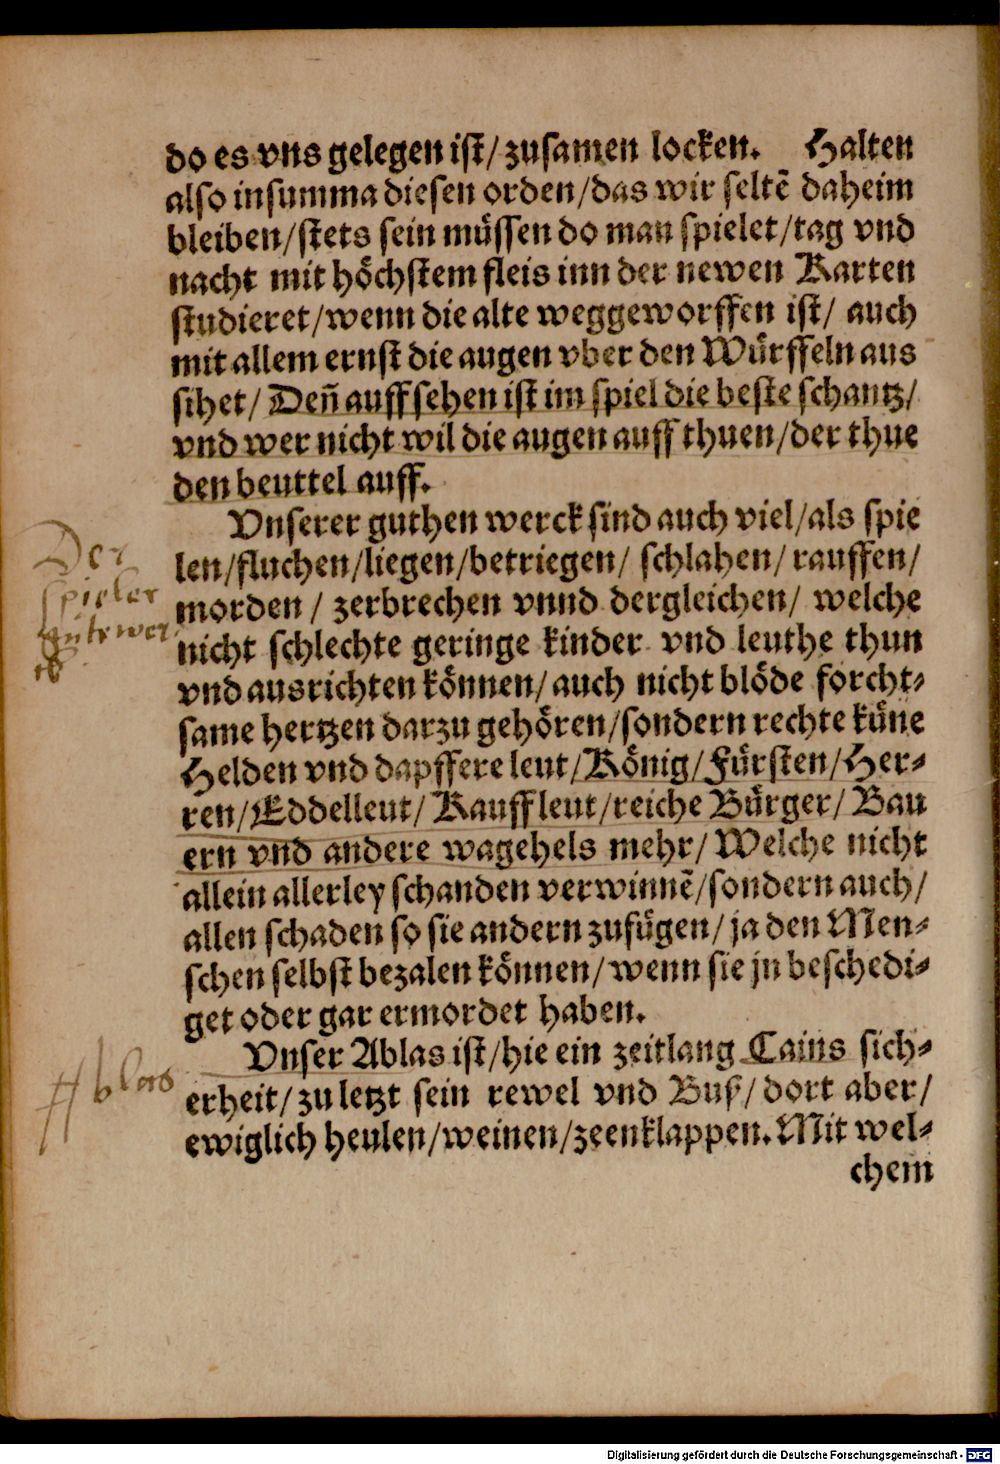 do es vns gelegen ist/ zusamen locken. Halten
also in summa diesen orden/das wir seltē daheim
bleiben/stets sein müssen do man spielet/tag vnd
nacht mit höchstem fleis inn der newen Karten
studieret/wenn die alte weggeworffen ist/ auch
mit allem ernst die augen vber den Würffeln aus
sihet/ Deñ auffsehen ist im spiel die beste schantz/
vnd wer nicht wil die augen auff thuen/der thue
den beuttel auff.
Vnserer guthen werck sind auch viel/als spie
len/fluchen/liegen/betriegen/ schlahen/ rauffen/
morden/ zerbrechen vnnd dergleichen/ welche
nicht schlechte geringe kinder vnd leuthe thun
vnd ausrichten können/ auch nicht blöde forcht⸗
same hertzen darzu gehören/sondern rechte küne
Helden vnd dapffere leut/König/Fürsten/Her⸗
ren/Eddelleut/ Kauffleut/reiche Bürger/ Bau
ern vnd andere wagehels mehr/ Welche nicht
allein allerley schanden verwinnē/sondern auch/
allen schaden so sie andern zufügen/ ja den Men⸗
schen selbst bezalen können/wenn sie jn beschedi⸗
get oder gar ermordet haben.
Vnser Ablas ist/hie ein zeitlang Cains sich⸗
erheit/ zu letzt sein rewel vnd Buß/ dort aber/
ewiglich heulen/weinen/zeenklappen. Mit wel⸗
chem
Der
spieler
gute wer
Ablas
Digitalisierung gefördert durch die Deutsche Forschungsgemeinschaft - DFG